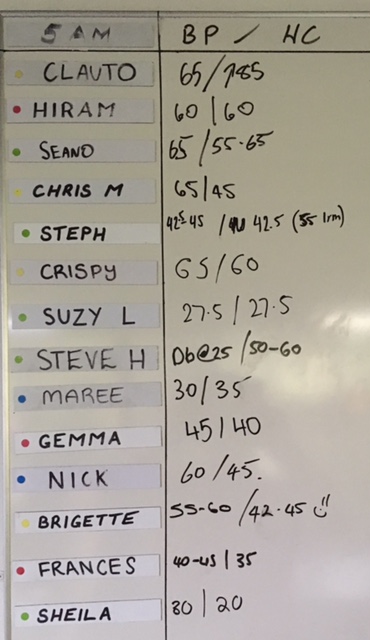 5 AM BP / HC
CLAUTO 65/785
HIRAM 60/60
SEANO 65/55-65
CHRIS M 65/45
STEPH 42.5-45 / 42.5 (55 1rm)
CRISPY 65/60
SUZY L 27.5/27.5
STEVE H Db@25/50-60
MAREE 30/35
GEMMA 45/40
NICK 60/45.
BRIGETTE 55-60/42-45
FRANCES 40-45/35
SHEILA 30/20